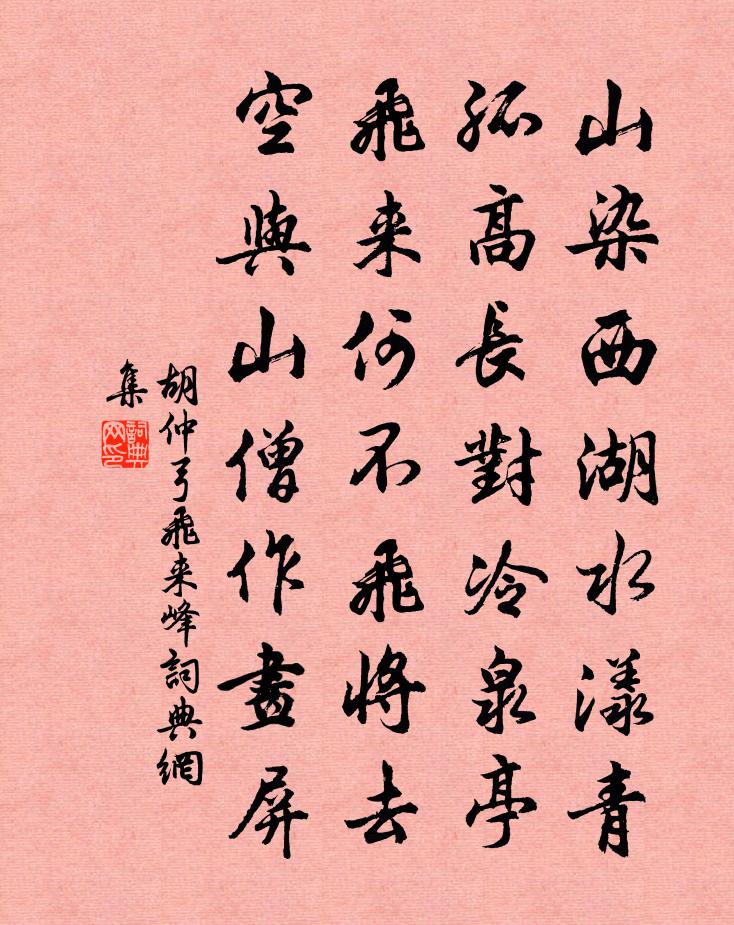 山染西湖水漾青
孤高長對冷泉亭
飛来何不飛將去
空與山僧作畫屏
胡仲弓飛来峰詞典網
集
詞典
网印